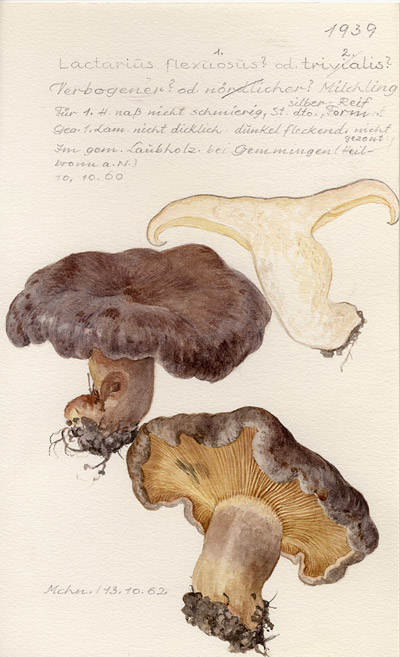 1939
1. 2.
Lactarius flexuosus? od. trivialis?
Verbogener? od nördlicher? Milchling
silber-Reif
Für 1. # naß nicht schmierig, St. dto., Form +
Geg. 1. Lam. nicht dicklich, dunkel fleckend, nicht
gezont.,
Im gem. Laubholz. bei Gemmingen (Heil-
bronn a.N.)
10, 10.60
Mchn. 13.10.62